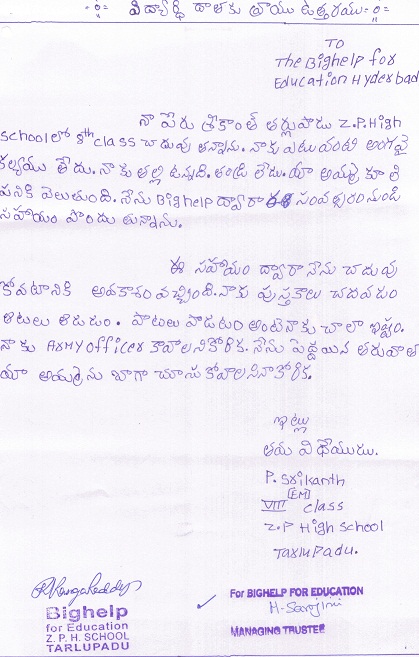 విద్యార్థి దాతకు వ్రాయు ఉత్తరము:-
To
The Bighelp for
Education Hyderabad
నా పేరు శ్రీకాంత్ తర్లుపాడు Z.P.High
schoolలో 8th class చదువు తున్నాను. నాకు ఎటువంటి అంగవై
కల్యము లేదు. నాకు తల్లి ఉన్నది. తండ్రి లేడు. మా అమ్మ కూలి
పనికి వెలుతుంది. నేను Bighelp ద్వారా ఈ సంవత్సరం నుండి
సహాయం పొందు తున్నాను.
ఈ సహాయం ద్వారా నేను చదువు
కోవటానికి అవకాశం వచ్చింది. నాకు పుస్తకాలు చదవడం
ఆటలు ఆడడం. పాటలు పాడటం అంటె నాకు చాలా ఇష్టం.
నాకు ARMY officer కావాలని కోరిక. నేను పెద్దయిన తరువాత
మా అమ్మను బాగా చూసు కోవాలని నా కోరిక.
ఇట్లు
తమ విధేయుడు.
P. Srikanth
(EM)
VIII class
Z.P High School
Tarlupadu.
Bighelp
for Education
Z. P. H. SCHOOL
TARLUPADU
For BIGHELP FOR EDUCATION
M. Sarojini
MANAGING TRUSTEE